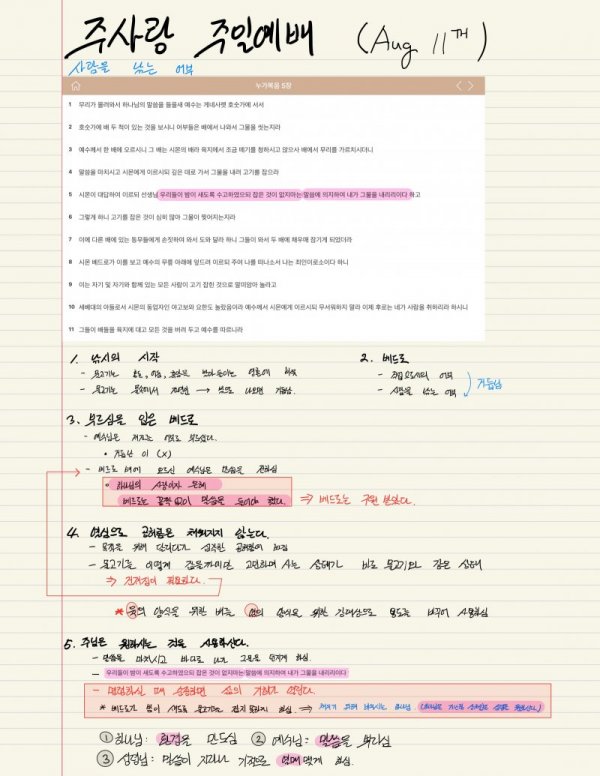 주사랑 주일예배 (Aug 11th)
사람을 낚는 어부
누가복음 5장
1 무리가 몰려와서 하나님의 말씀을 들을새 예수는 게네사렛 호숫가에 서서
2 호숫가에 배 두 척이 있는 것을 보시니 어부들은 배에서 나와서 그물을 씻는지라
3 예수께서 한 배에 오르시니 그 배는 시몬의 배라 육지에서 조금 떼기를 청하시고 앉으사 배에서 무리를 가르치시더니
4 말씀을 마치시고 시몬에게 이르시되 깊은 데로 가서 그물을 내려 고기를 잡으라
5 시몬이 대답하여 이르되 선생님 우리들이 밤이 새도록 수고하였으되 잡은 것이 없지마는 말씀에 의지하여 내가 그물을 내리리이다 하고
6 그렇게 하니 고기를 잡은 것이 심히 많아 그물이 찢어지는지라
7 이에 다른 배에 있는 동무들에게 손짓하여 와서 도와 달라 하니 그들이 와서 두 배에 채우매 잠기게 되었더라
8 시몬 베드로가 이를 보고 예수의 무릎 아래에 엎드려 이르되 주여 나를 떠나소서 나는 죄인이로소이다 하니
9 이는 자기 및 자기와 함께 있는 모든 사람이 고기 잡힌 것으로 말미암아 놀라고
10 세베대의 아들로서 시몬의 동업자인 야고보와 요한도 놀랐음이라 예수께서 시몬에게 이르시되 무서워하지 말라 이제 후로는 네가 사람을 취하리라 하시니
11 그들이 배들을 육지에 대고 모든 것을 버려 두고 예수를 따르니라
1. 낚시의 시작
- 물고기는
- 물고기는 물속에서 → 밖으로 나오면
2. 베드로
- 어부
- 사람을 낚는 어부
거듭남
3. 부르심을 입은 베드로
- 예수님은
• 거듭난 이 (X)
- 베드로 배에 오르신 예수님은 말씀을 전하심
• 하나님의 사랑이자 은혜
베드로는 꼼짝없이 말씀을 들어야 했다. ⇒ 베드로는 구원 받았다.
4. 열심으로 공허함은 채워지지 않는다.
- 물질을 위해
- 물고기를 어떻게 잡을까이면 고민하며 사는 상태가 바로 물고기와 같은 상태
⇒ 건져짐이 필요하다.
* 육의 양식을 위한 배를 영의 양식을 위한 강대상으로 용도를 바꾸어 사용하심
5. 주님은 원하시는 것을 사용하신다.
- 말씀을 마치시고 바다로 나가 그물을 던지게 하심.
- 우리들이 밤이 새도록 수고하였으되 잡은 것이 없지마는 말씀에 의지하여 내가 그물을 내리리이다
- 명령하실 때 순종하면 삶의 기적이 일어난다.
* 베드로가 밤이 새도록 물고기를 잡지 못하게 하심. ⇒ 하나님
① 하나님: 환경을 만드심 ② 예수님: 말씀을 뿌리심
③ 성령님: 말씀이 자라나 기적으로 열매맺게 하심.